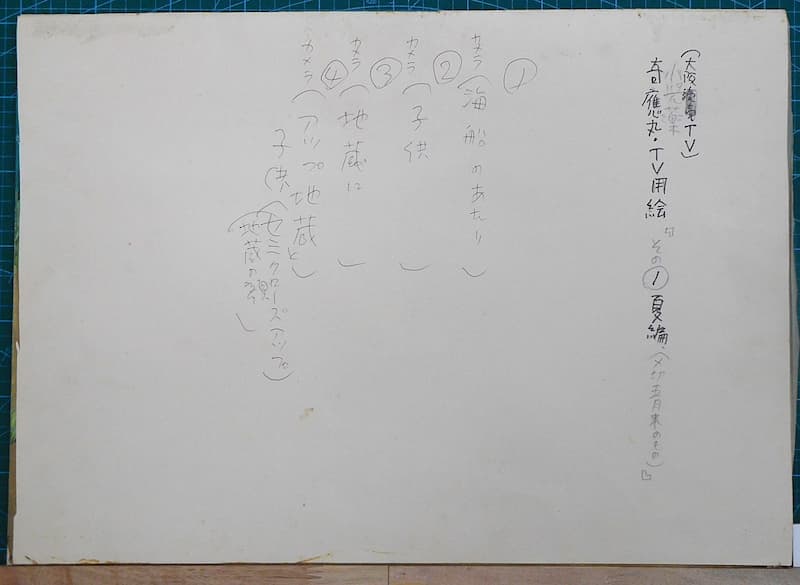 (大阪 TV)
奇應丸・TV用絵 その① 夏編、(〆切五月末のもの)
①
カメラ(海船のあたり)
②
カメラ(子供)
③
カメラ(地蔵に)
④
カメラ(アップ地蔵と)
子供(セミクローズアップ)
(地蔵の顔)